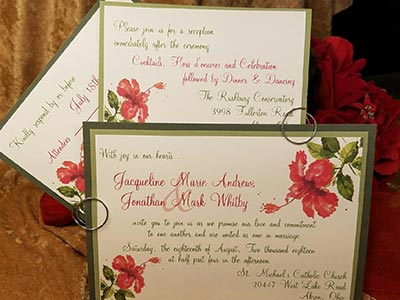 Please join us for a reception
immediately after the ceremony
Cocktails, Hors d'oeuvres and Celebration
followed by Dinner & Dancing
The Rushbury Conservatory
3998 Fullerton Road
Kindly respond by or before
July 18th
Attendees
With joy in our hearts...
Jacqueline Marie Andrews
&
Jonathan Mark Whitby
invite you to join us as we promise our love and commitment
to one another and are united as one in marriage
Saturday, the eighteenth of August, Two thousand eighteen
at half past four in the afternoon
St. Michael's Catholic Church
20447 West Lake Road
Akron, Ohio